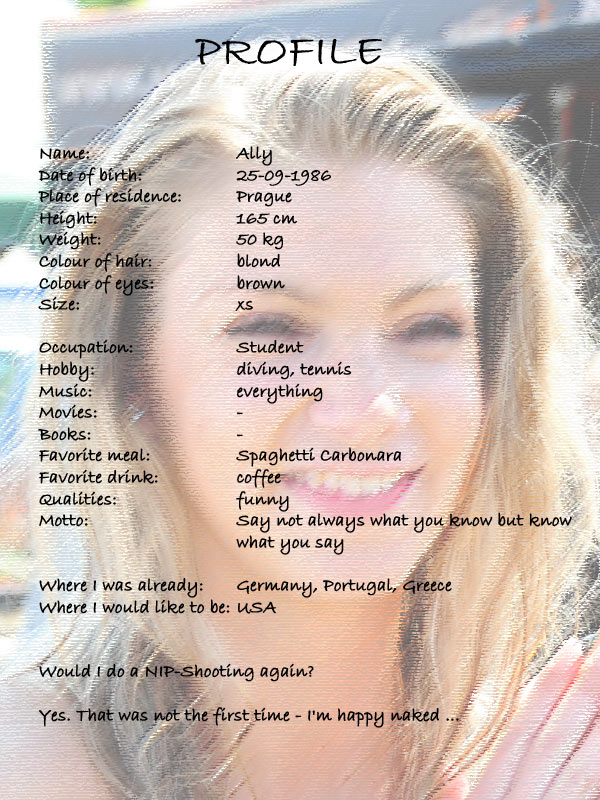 PROFILE
Name: Ally
Date of birth: 25-09-1986
Place of residence: Prague
Height: 165 cm
Weight: 50 kg
Colour of hair: blond
Colour of eyes: brown
Size: xs
Occupation: Student
Hobby: diving, tennis
Music: everything
Movies: -
Books: -
Favorite meal: Spaghetti Carbonara
Favorite drink: coffee
Qualities: funny
Motto: Say not always what you know but know
what you say
Where I was already: Germany, Portugal, Greece
Where I would like to be: USA
Would I do a NIP-Shooting again?
Yes. That was not the first time - I'm happy naked ...